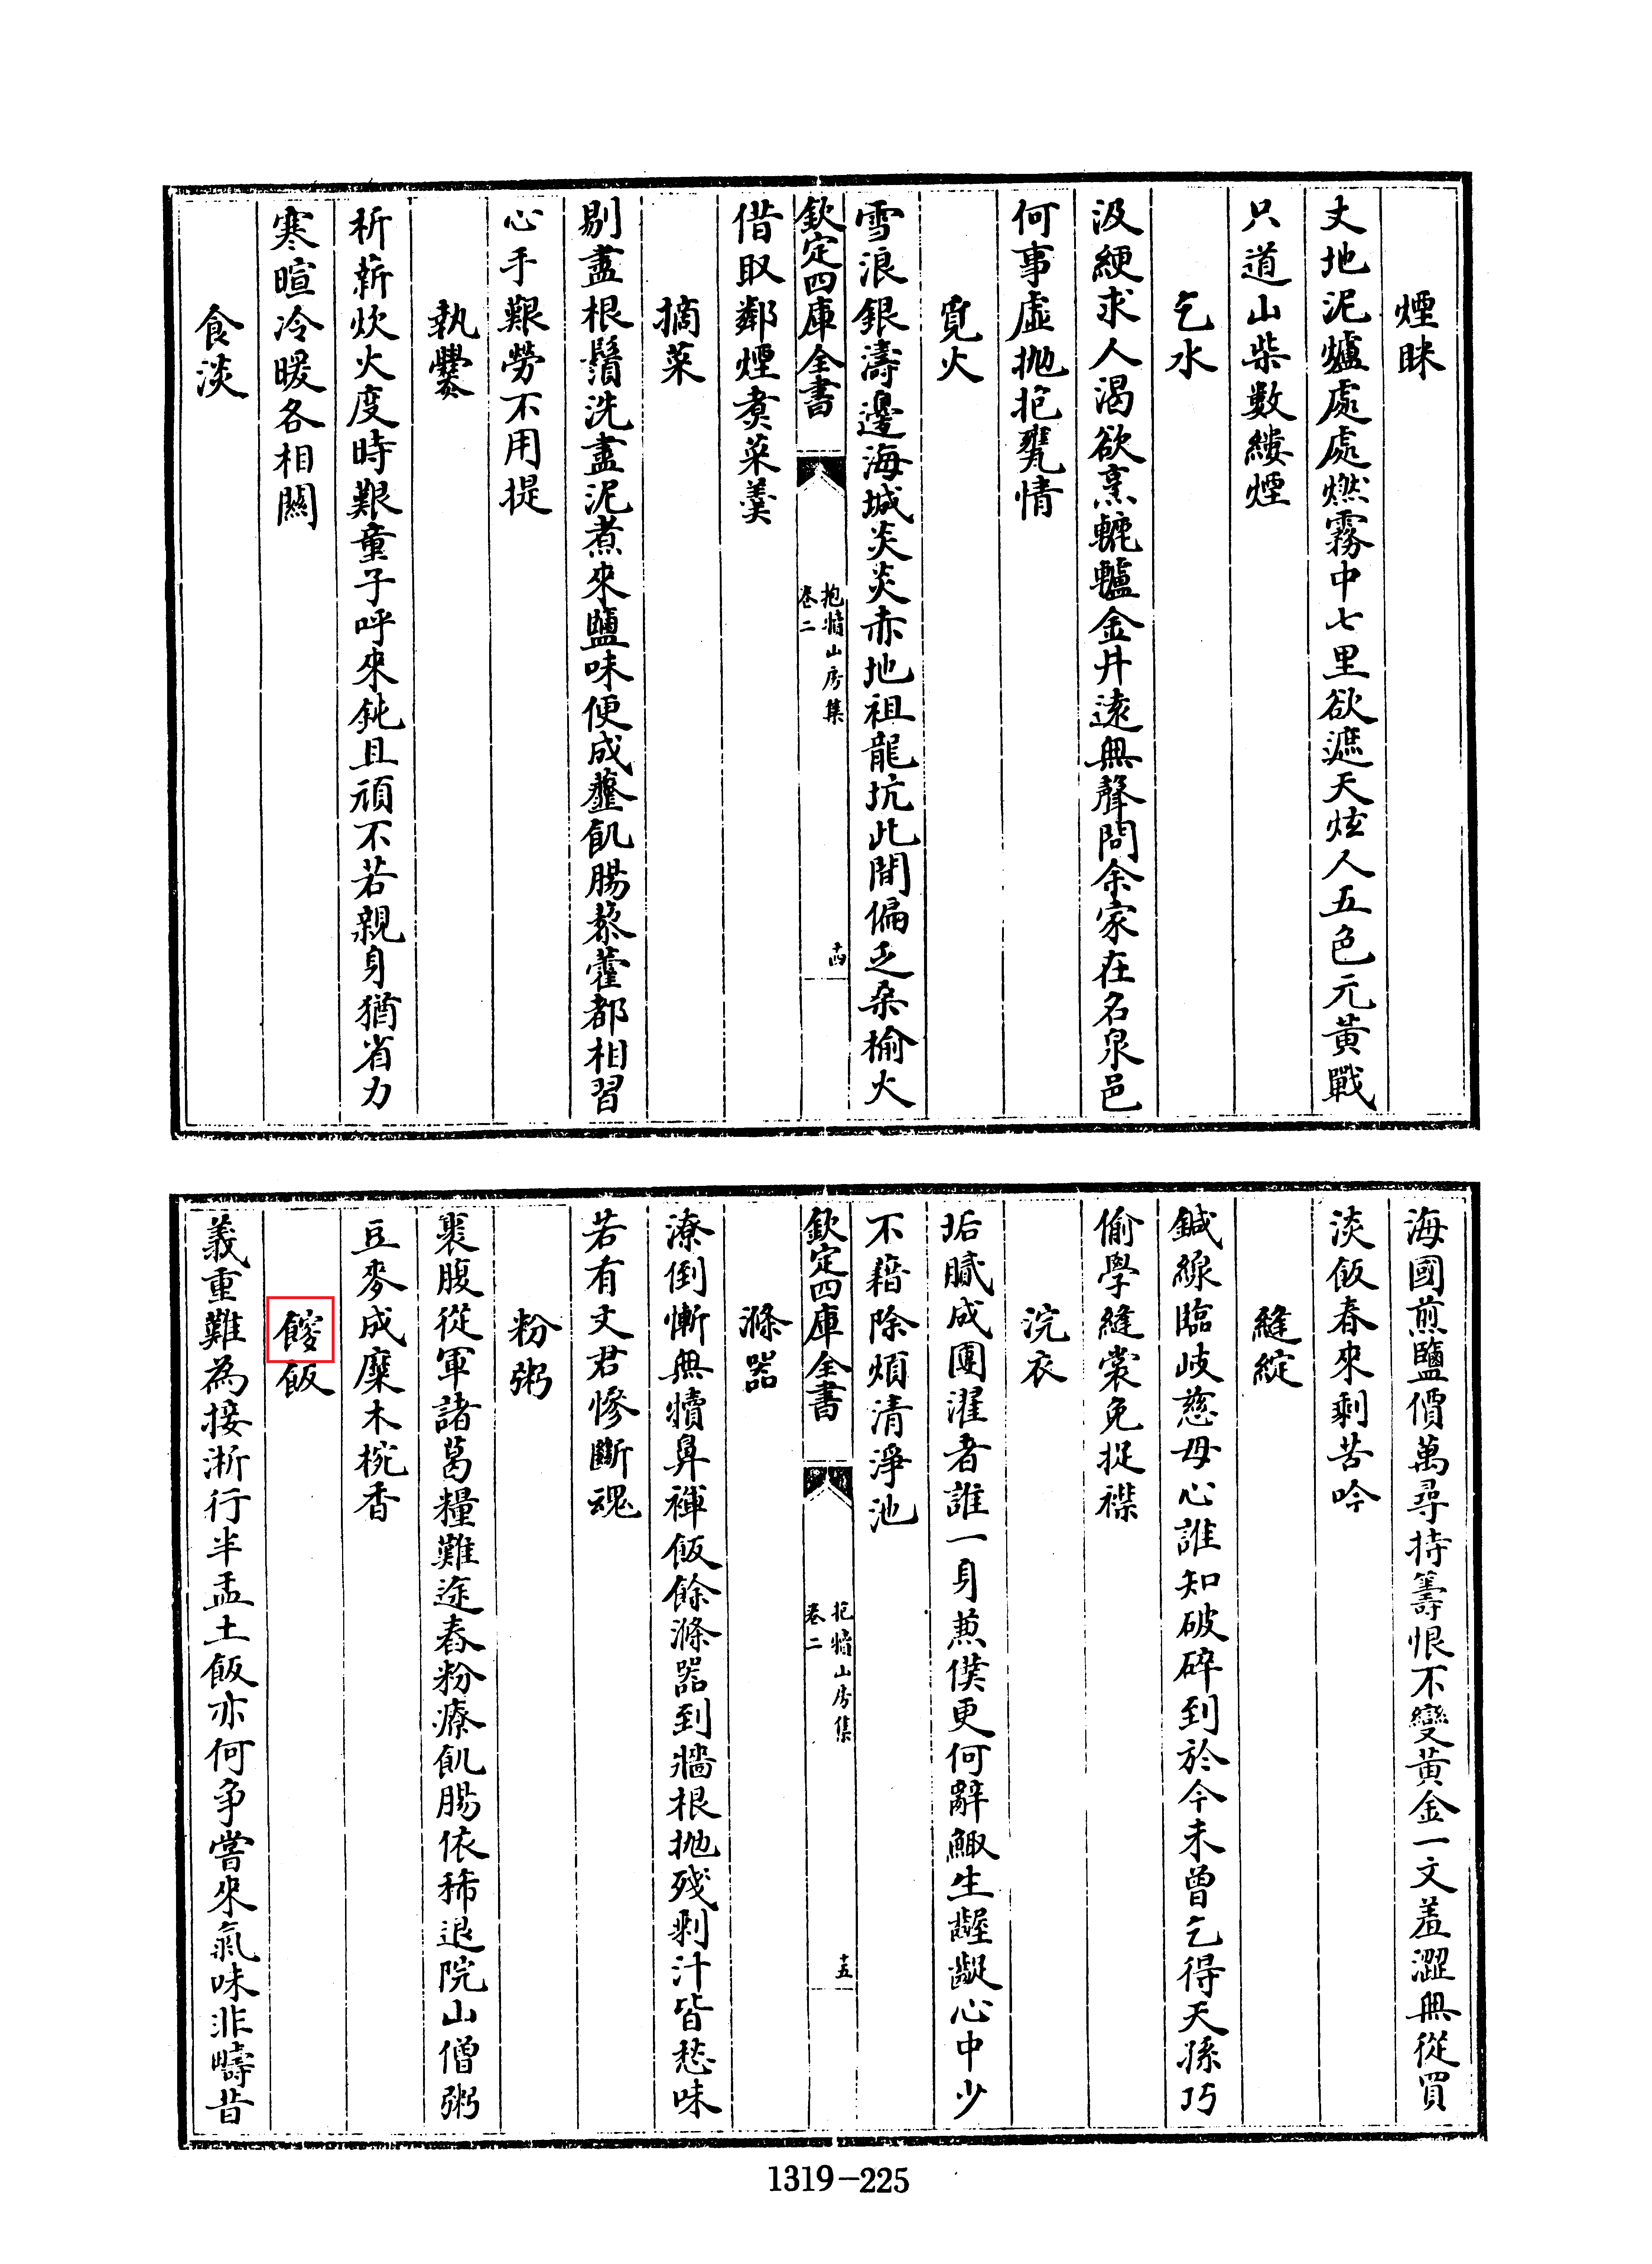 煙眯
丈地泥爐處處燃霧中七里欲遮天炫人五色元黃戰
只道山柴數縷煙
乞水
汲綆求人渴欲烹轆轤金井遠無聲問余家在名泉邑
何事虛抛抱甕情
覓火
雪浪銀濤邊海城炎炎赤地祖龍坑此間偏乏桑榆火
欽定四庫全書
抱犢山房集
卷二
十四
借取鄰煙煮菜羹
摘菜
剔盡根鬚洗盡泥煮來鹽味便成虀飢腸藜藿都相習
心手艱勞不用提
執爨
析薪炊火度時艱童子呼來鈍且頑不若親身猶省力
寒暄冷暖各相關
食淡
海國煎鹽價萬尋持籌恨不變黃金一文羞澀無從買
淡飯春來剩苦吟
縫綻
鍼線臨岐慈母心誰知破碎到於今未曾乞得天孫巧
偷學縫裳免捉襟
浣衣
垢膩成團濯者誰一身兼僕更何辭鯫生齷齪心中少
不藉除煩清淨池
欽定四庫全書
抱犢山房集
卷二
十五
滌器
潦倒慚無犢鼻褌飯餘滌器到牆根抛殘剩汁皆愁味
若有文君慘斷魂
粉粥
裹腹從軍諸葛糧難途舂粉療飢腸依稀退院山僧粥
豆麥成糜木椀香
餿飯
義重難為接淅行半盂土飯亦何爭嘗來氣味非疇昔
1319-225